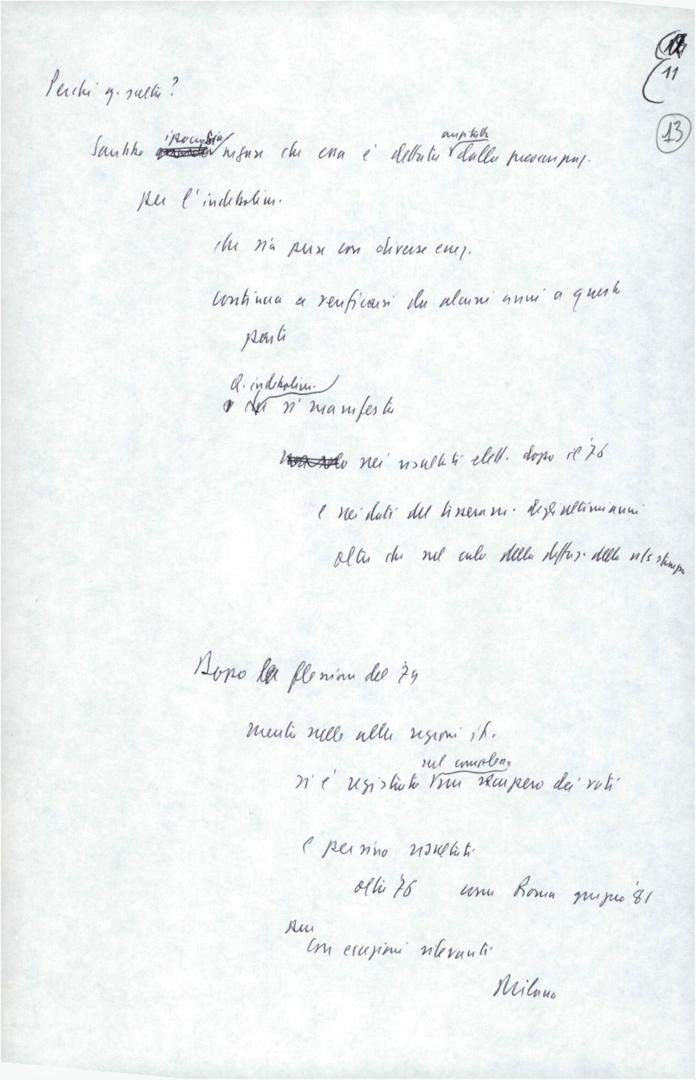 11
13
Perché q. scelta?
Sarebbe ipocrisia negare che essa è dettata anzitutto dalla preoccupaz.
per l'indebolim.
che sia pure con diverse
continua a verificarsi da alcuni anni a questa
parte
Q. indebolim.
si manifesta
nei risultati elett. dopo il '76
e nei dati del tesseram. degli ultimi anni
oltre che nel calo della diffus. della ns stampa
Dopo la flessione del '79
mentre nelle altre regioni it.
si è registrato nel complesso un recupero dei voti
e persino risultati
oltre '76 come Roma giugno '81
pur
con eccezioni rilevanti
Milano